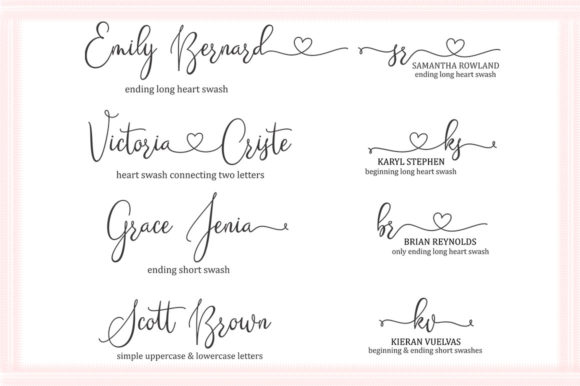 Emily Bernard
ending long heart swash
sr
SAMANTHA ROWLAND
ending long heart swash
Victoria Criste
heart swash connecting two letters
ks
KARYL STEPHEN
beginning long heart swash
Grace Jenia
ending short swash
br
BRIAN REYNOLDS
only ending long heart swash
Scott Brown
simple uppercase & lowercase letters
kv
KIERAN VUELVAS
beginning & ending short swashes